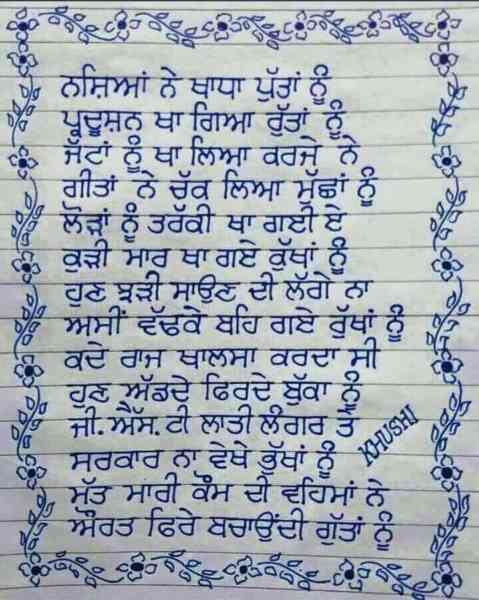 ਨਸ਼ਿਆਂ ਨੇ ਖਾਧਾ ਪੁੱਤਾਂ ਨੂੰ
ਪ੍ਰਦੂਸ਼ਨ ਖਾ ਗਿਆ ਰੁੱਤਾਂ ਨੂੰ
ਜੱਟਾਂ ਨੂੰ ਖਾ ਲਿਆ ਕਰਜੇ ਨੇ
ਗੀਤਾਂ ਨੇ ਚੁੱਕ ਲਿਆ ਮੁੱਛਾਂ ਨੂੰ
ਲੋੜਾਂ ਨੂੰ ਤਰੱਕੀ ਖਾ ਗਈ ਏ
ਕੁੜੀ ਮਾਰ ਖਾ ਗਏ ਕੁੱਖਾਂ ਨੂੰ
ਹੁਣ ਝੜੀ ਸਾਉਣ ਦੀ ਲੱਗੇ ਨਾ
ਅਸੀਂ ਵੱਢਕੇ ਬਹਿ ਗਏ ਰੁੱਖਾਂ ਨੂੰ
ਕਦੇ ਰਾਜ ਖਾਲਸਾ ਕਰਦਾ ਸੀ
ਹੁਣ ਅੱਡਦੇ ਫਿਰਦੇ ਬੁੱਕਾ ਨੂੰ
ਜੀ. ਐੱਸ. ਟੀ ਲਾਤੀ ਲੰਗਰ ਤੇ
ਸਰਕਾਰ ਨਾ ਵੇਖੇ ਭੁੱਖਾਂ ਨੂੰ
KHUSHI
ਮੱਤ ਮਾਰੀ ਕੌਮ ਦੀ ਵਹਿਮਾਂ ਨੇ
ਔਰਤ ਫਿਰੇ ਬਚਾਉਂਦੀ ਗੁੱਤਾਂ ਨੂੰ